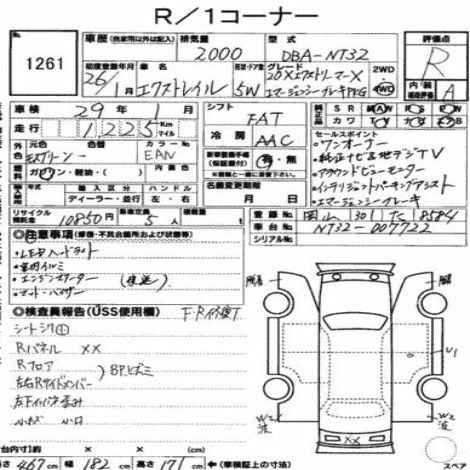 R/1コーナー
1261
車歴(自家用以外は記入) 排気量 2000 型式 DBA-NT32 評価点 R
初度登録年月 26/1月 車名 エクストレイル 形状・ドア数 5W グレード 20XエクストリーマーX エマージェンシーブレーキPKG 2WD 4WD 内装 補助評価 A
車検 29年1月 シフト FAT 純正品 SR AW PS PW
走行 11225 Km マイル 冷房 AAC カワ TV ナビ エアB
外元色 色替 カラーNo. EAN
燃料 ガソリン・軽油・( ) 新車整備手帳(保証書付) 有・無
輸入区分 ハンドル
ディーラー・並行 左・右
名義変更期限 月 日
リサイクル預託金 10850円 乗車定員 5人 積載量
セールスポイント
・ワンオーナー
・純正ナビ&地デジTV
・アラウンドビューモニター
・インテリジェントパーキングアシスト
・エマージェンシーブレーキ
登録No. 岡山 301 ち 18584
車台No. NT32-007722
シリアルNo.
◎注意事項(修復・不具合箇所および状態等)
・LEDヘッドライト
・室内イルミ
・エンジンスターター (後送)
・マット・バイザー
◎検査員報告(USS使用欄)
シートシワ
Rパネル XX
Rフロア
左右Rサイドメンバー
BPヒズミ
小キズ 小凹
U1
W2 波
XX
W2 波
スペア
(cm)
長さ 467 cm 幅 182 cm 高さ 171 cm ←(車検証上の寸法)